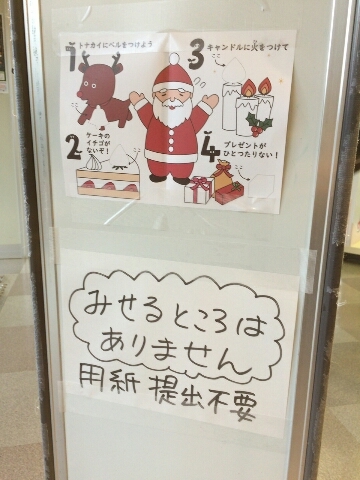 1 トナカイにベルをつけよう
3 キャンドルに火をつけて
ここ
ここ
2 ケーキの
イチゴが
ないぞ!
ここ
4 プレゼントが
ひとつたりない!
みせるところは
ありません
用紙 提出不要